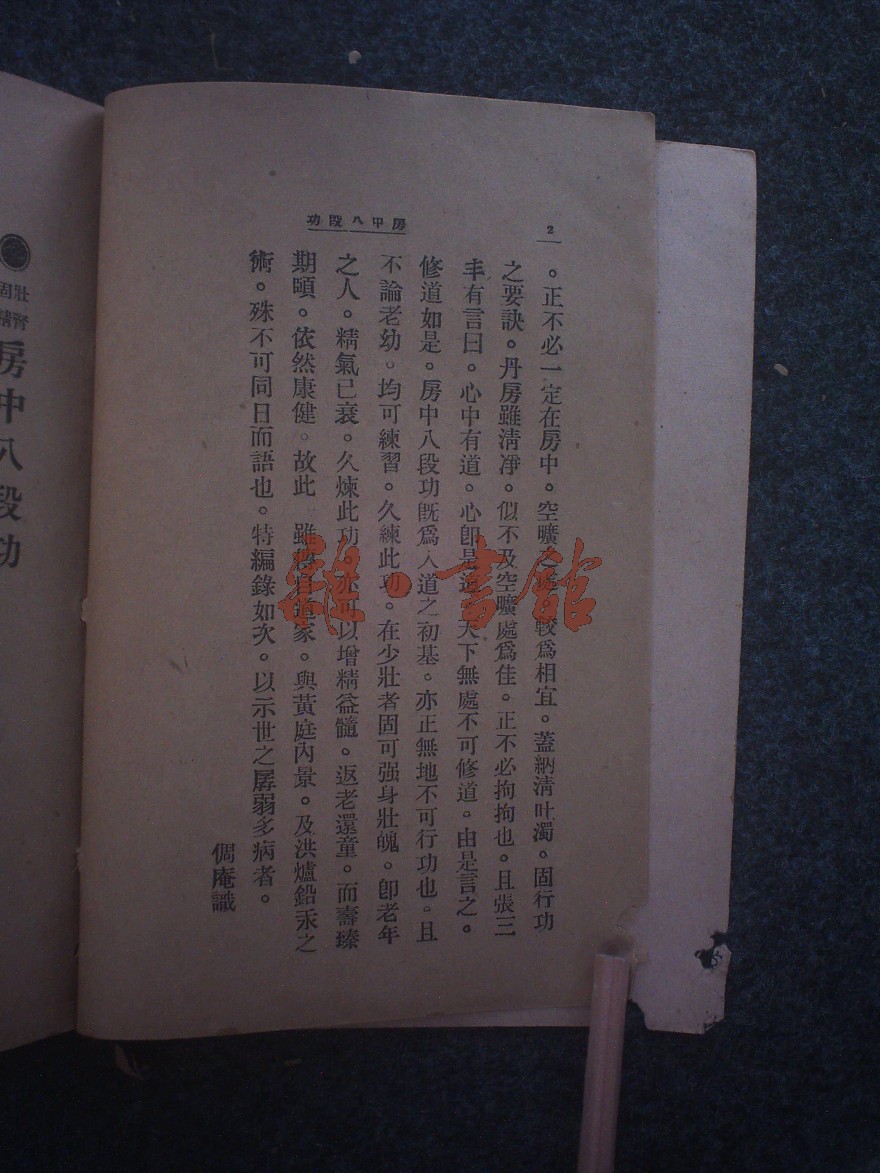 2
房中八段功
。正不必一定在房中。空曠之較爲相宜。蓋納淸吐濁。固行功
之要訣。丹房雖淸凈。似不及空曠處爲佳。正不必拘拘也。且張三
丰有言曰。心中有道。心卽是道。天下無處不可修道。由是言之。
修道如是。房中八段功旣爲入道之初基。亦正無地不可行功也。且
不論老幼。均可練習。久練此功。在少壯者固可强身壯魄。卽老年
之人。精氣已衰。久煉此功。亦可以增精益髓。返老還童。而壽臻
期頤。依然康健。故此 雖自道家。與黃庭內景。及洪爐鉛汞之
術。殊不可同日而語也。特編錄如次。以示世之孱弱多病者。
倜庵識
壯腎
固精
房中八段功
雜·書館